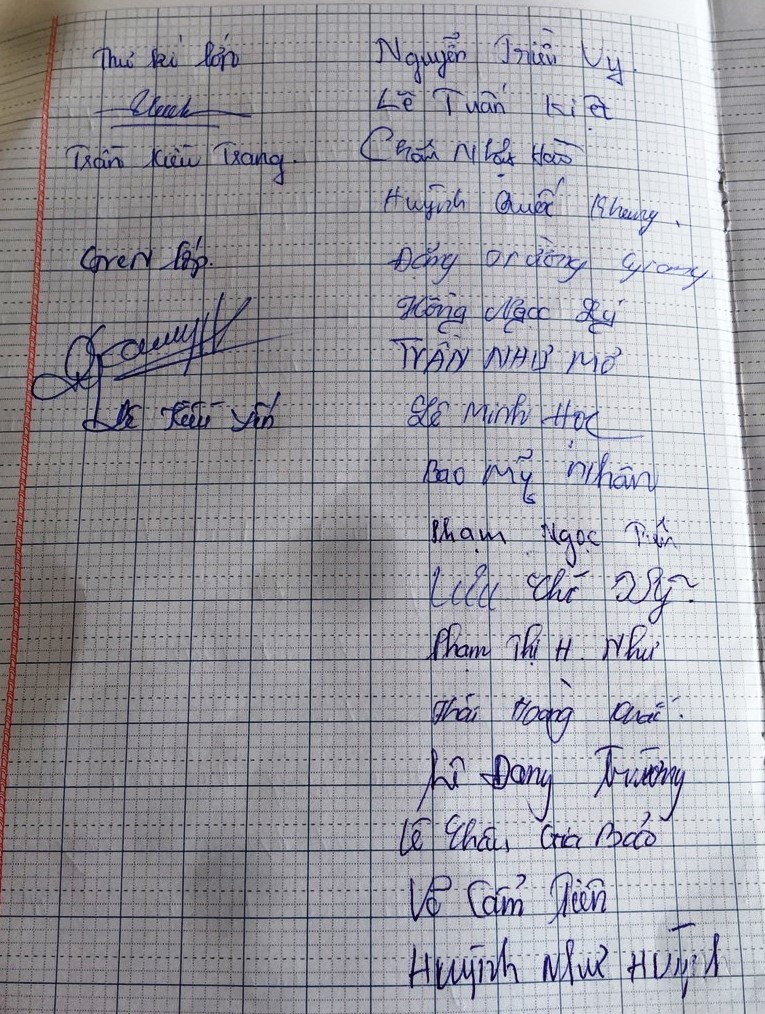 Thư kí lớp
Trần Kiều Trang.
GVCN lớp.
Lê Kiều
Nguyễn Triều Vy.
Lê Tuấn Kiệt
Nhật Hào
Huỳnh Quốc Khang.
Đặng Trường Giang.
Hồng Ngọc
TRẦN NHƯ MƠ
Lê Minh
Bao Mỹ Nhân
Phạm Ngọc
Lưu Chí Vỹ
Phạm Thị H. Như
Thái Hoàng Quắc.
Đang Trường
Lê Châu Gia Bảo
Võ Cẩm Tiên
Huỳnh Như Huỳnh